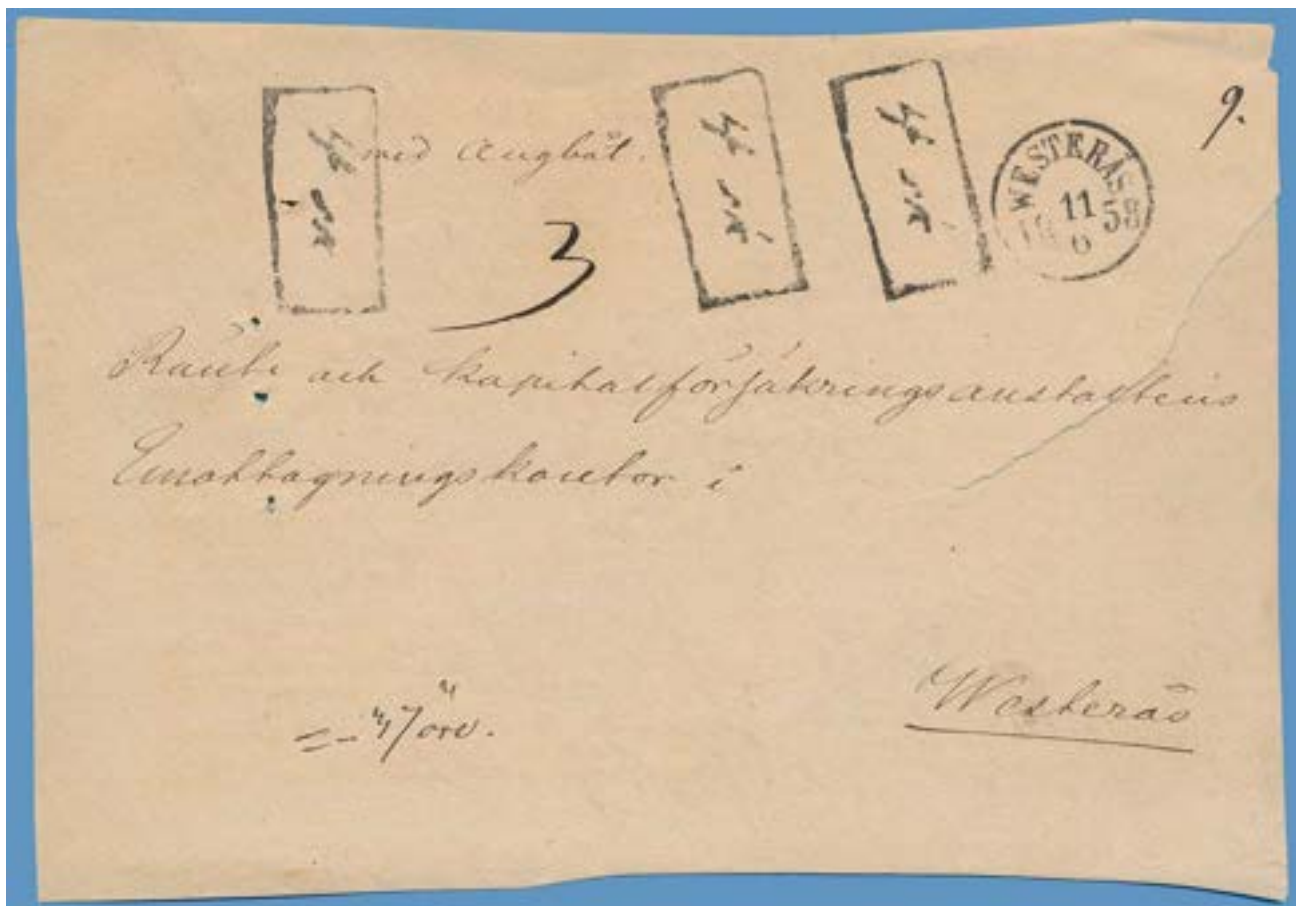 9.
med ångbåt.
WESTERÅS
18 11 58
6
3
Ränte och Kapitalförsäkringsanstaltens
Emottagningskontor i
Westerås
öre.